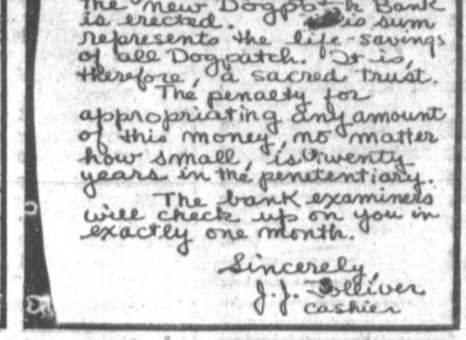 The new Dogpatch Bank
is erected. is sum
represents the life-savings
of all Dogpatch. It is,
therefore, a sacred trust.
The penalty for
appropriating any amount
of this money, no matter
how small, is twenty
years in the penetentiary.
The bank examiners
will check up on you in
exactly one month.
Sincerely,
J.J.
cashier